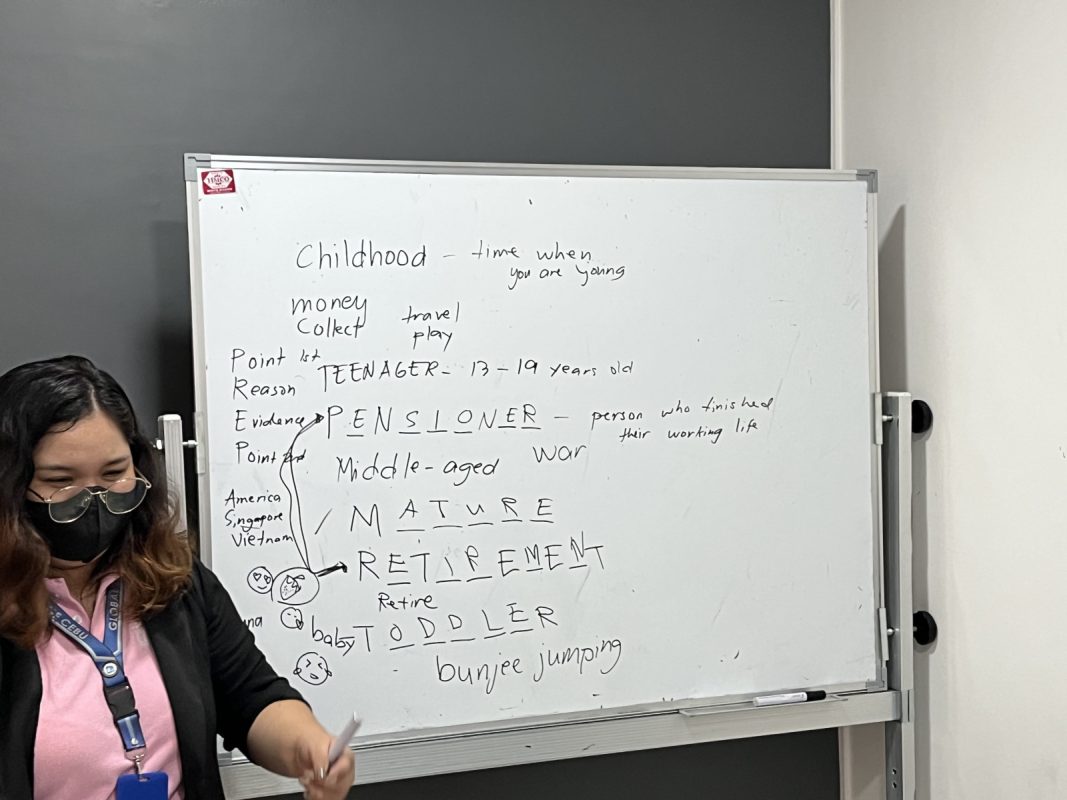 HMCO
Childhood - time when
you are young
money travel
Collect play
Point 1st
TEENAGER - 13 - 19 years old
Reason
Evidence
PENSIONER - person who finished
their working life
Point
Middle-aged war
America
Singapore
Vietnam
/ MATURE
RETIREMENT
Retire
baby TODDLER
bunjee jumping
CEBU
GLOBAL